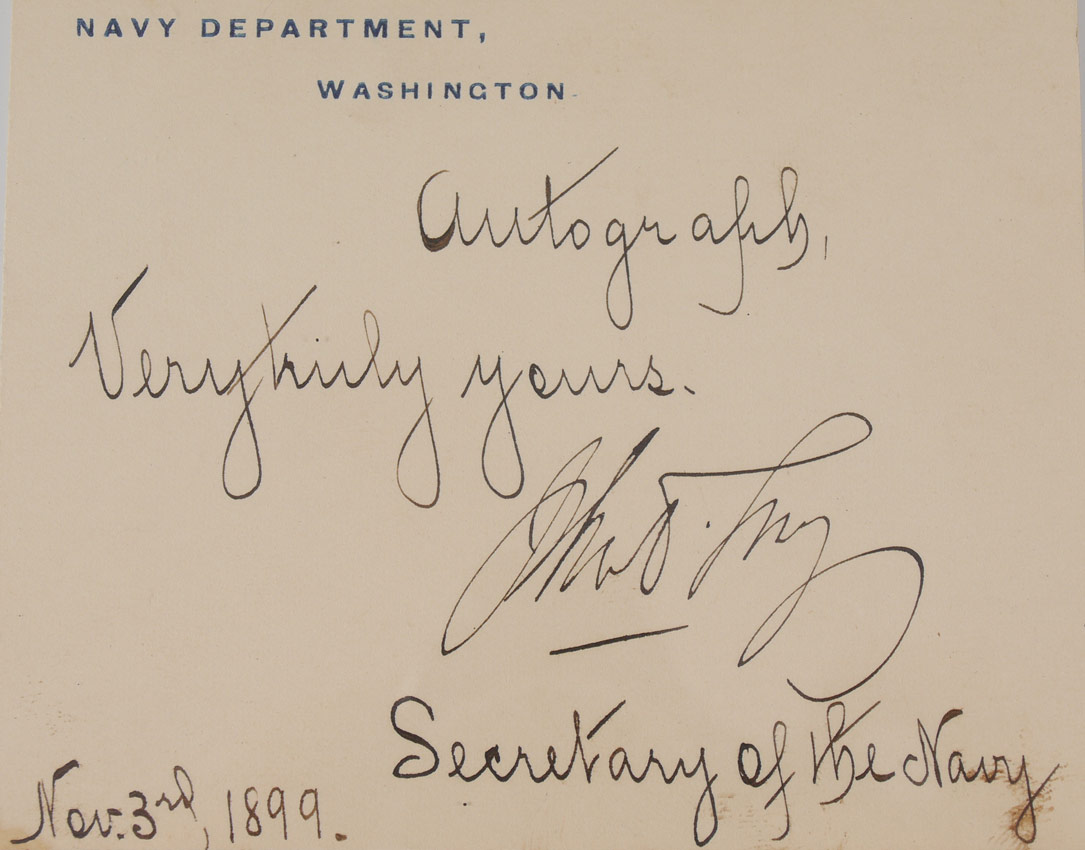 NAVY DEPARTMENT,
WASHINGTON
Autograph,
Very truly yours.
John D. Long
Secretary of the Navy
Nov. 3rd, 1899.